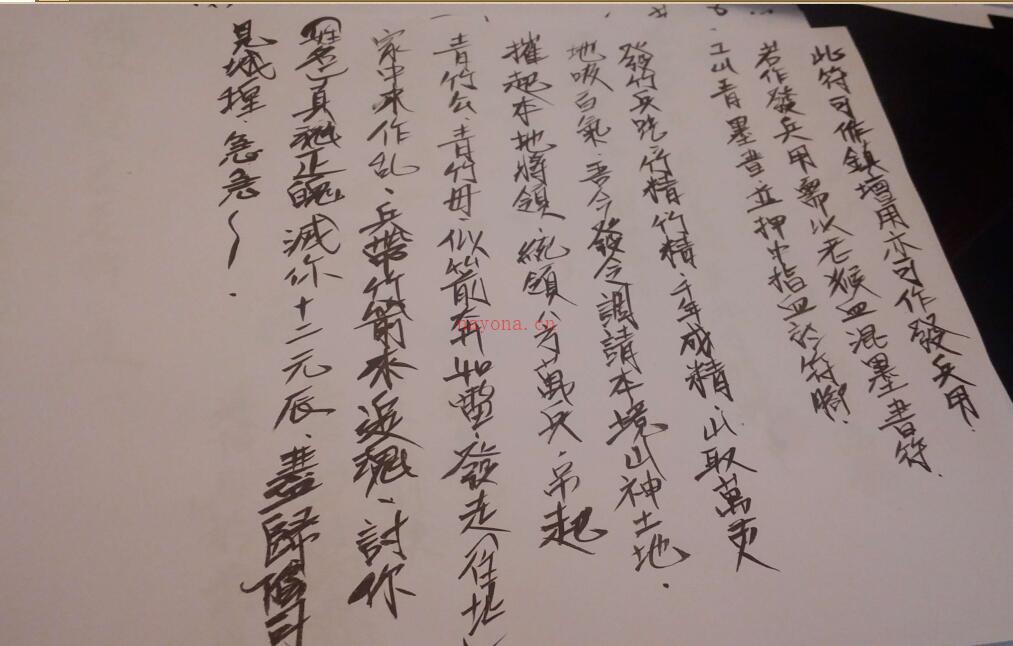 此符可作鎮壇用亦可作發兵用.
若作發兵用需以老猴血混墨書符.
青墨書 立押中指血於符腳.
發竹兵 竹精竹精.千年成精.山取萬
地吸百氣.吾今發令調請本境山神土地.
摧起本地将領.統領 萬兵.吊起
青竹公.青竹母.似箭 发走 往
家中来作乱.兵带竹箭来追魂.討你
姓名真魂正魄滅你十二元辰.盡歸
見城 急急
nayona.cn